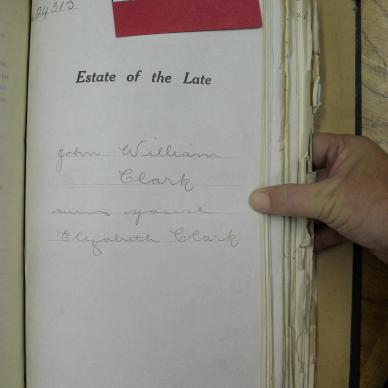 24315
Estate of the Late
John William
Clark
Elizabeth Clark